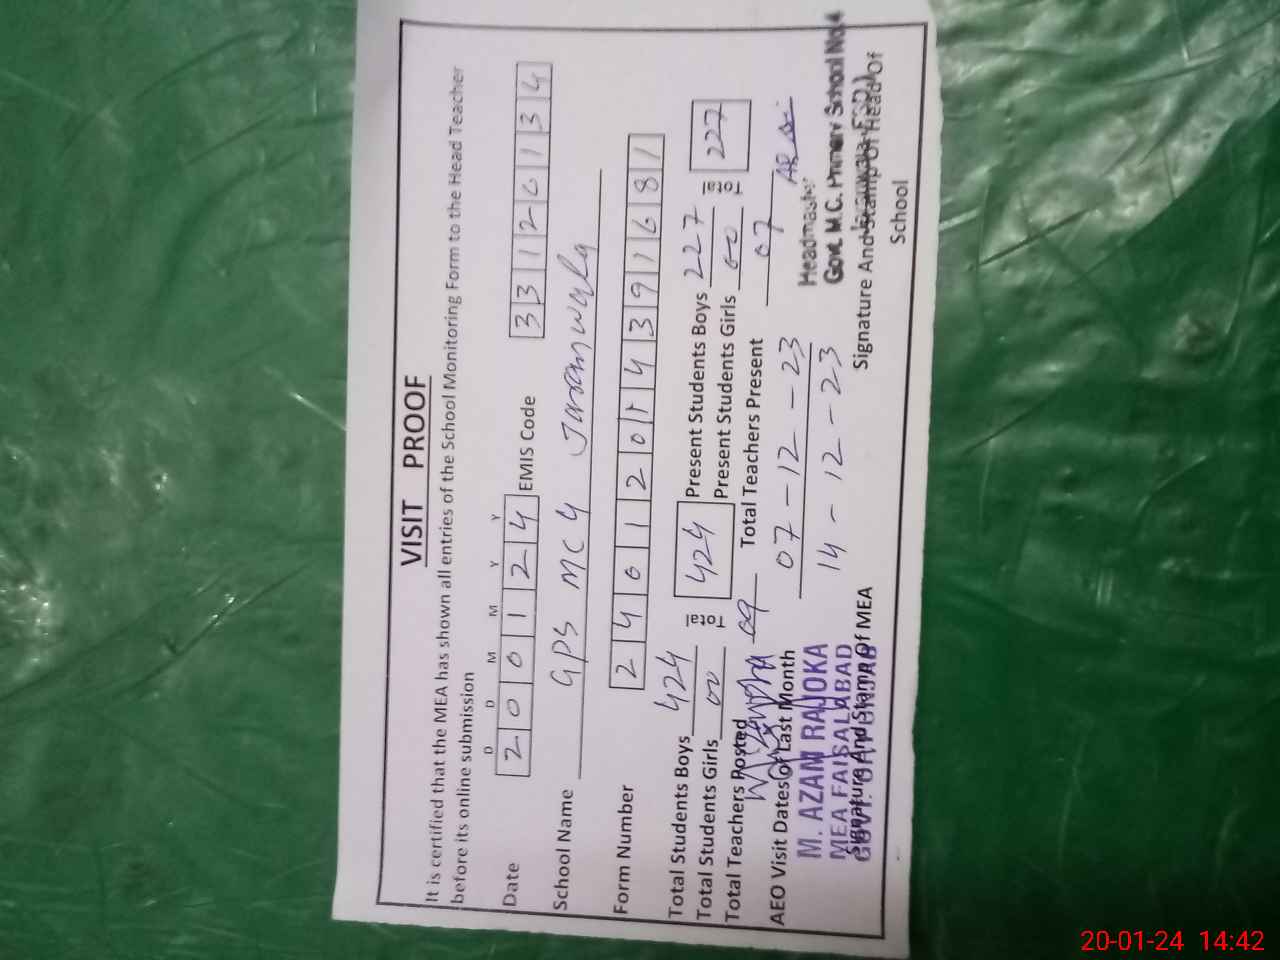 VISIT PROOF
It is certified that the MEA has shown all entries of the School Monitoring Form to the Head Teacher
before its online submission
D D M M Y Y
Date 2 0 0 1 2 4 EMIS Code 3 3 1 2 0 1 3 4
School Name GPS MC 4 Jaranwala
Form Number 2 4 0 1 2 0 1 4 3 9 1 6 8 1
Total Students Boys 424 Total 424 Present Students Boys 227 Total 227
Total Students Girls 00 Present Students Girls 00
Total Teachers Posted 09 Total Teachers Present 07
AEO Visit Dates of Last Month 07-12-23
14-12-23
M. AZAM RAJOKA
MEA FAISALABAD
GOVT. OF PUNJAB
Signature And Stamp Of MEA
Headmaster
Govt. M.C. Primary School No.4
Signature And Stamp Of Head Of
School
20-01-24 14:42